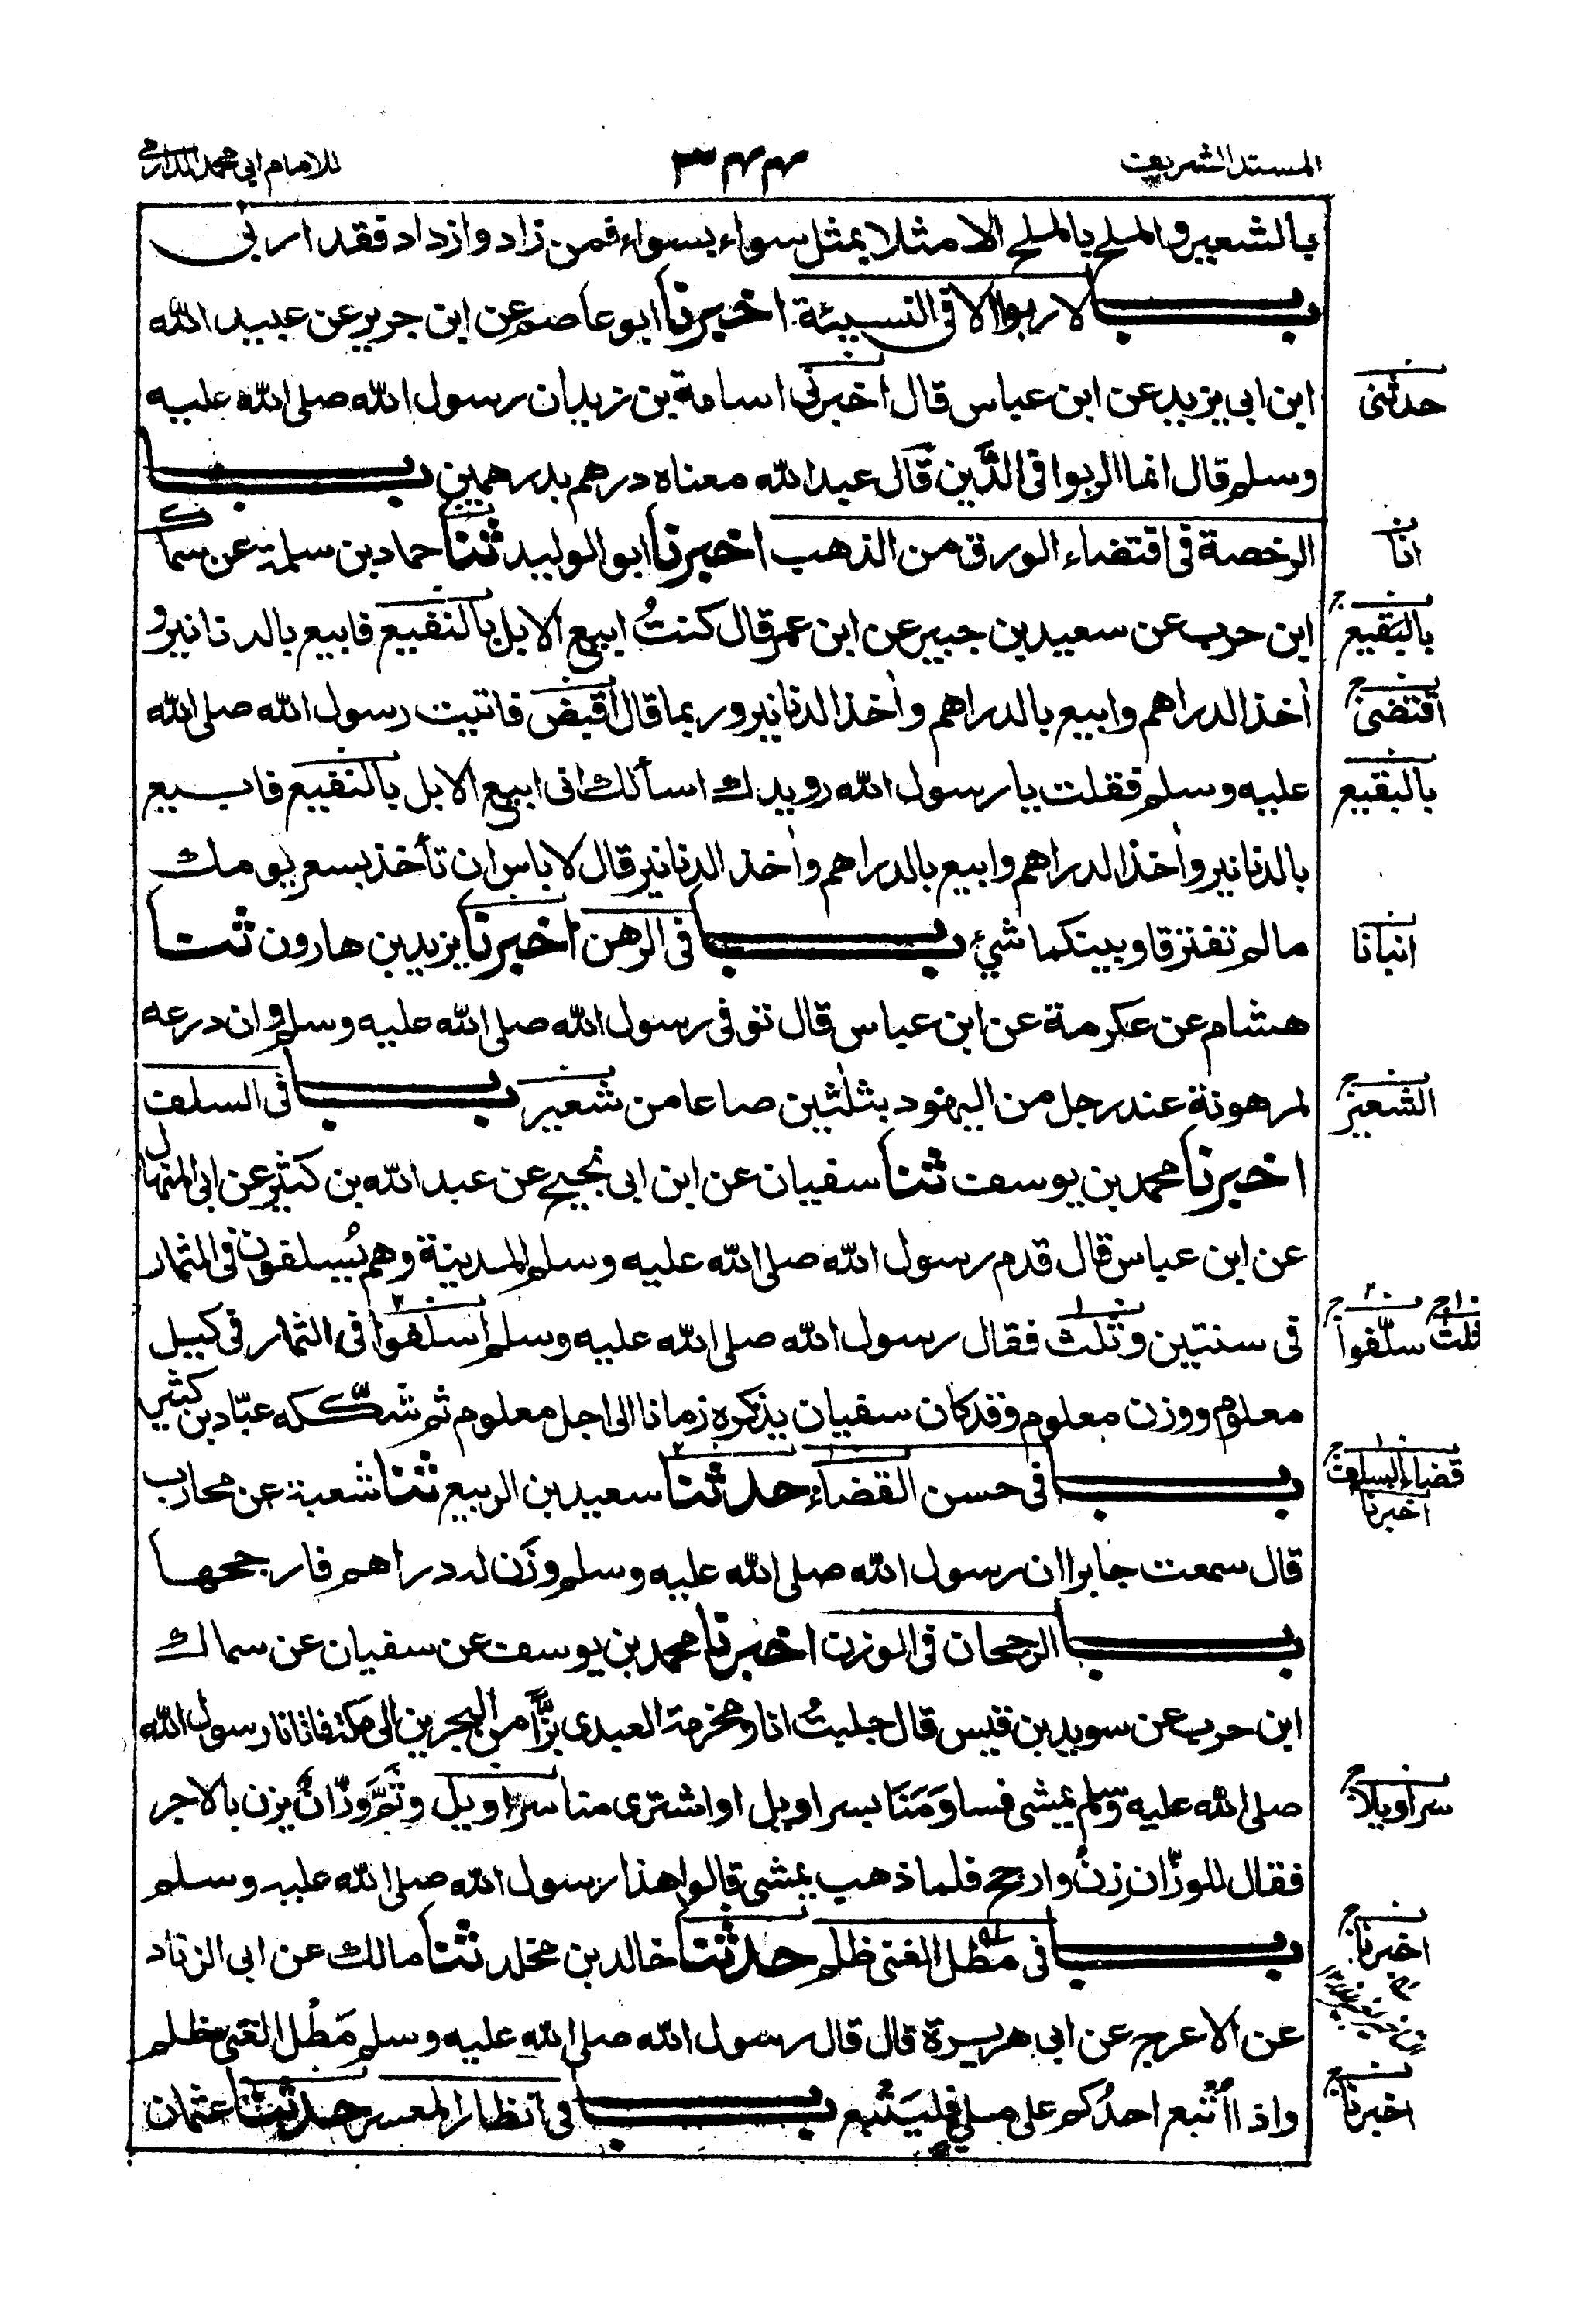 المسند الشريف ٣٤٤ للامام ابي محمد الدارمي
بالشعير والملح بالملح الا مثلا بمثل سواء بسواء فمن زاد وازداد فقد اربى
باب لا ربوا الا فى النسيئة اخبرنا ابو عاصم عن ابن جريج عن عبيد الله
ابن ابي يزيد عن ابن عباس قال اخبرنى اسامة بن زيد ان رسول الله صلى الله عليه
حدثنى
وسلم قال انما الربوا فى الدَّين قال عبد الله معناه درهم بدرهمين باب
الرخصة فى اقتضاء الورق من الذهب اخبرنا ابو الوليد ثنا حماد بن سلمة عن سماك
انا
ابن حرب عن سعيد بن جبير عن ابن عمر قال كنتُ ابيع الابل بالنقيع فابيع بالدنانير و
بالبَقيع
اٰخذ الدراهم وابيع بالدراهم واٰخذ الدنانير وربما قال اقبض فاتيت رسول الله صلى الله
اقتضى
عليه وسلم فقلت يا رسول الله رويدك اسألك انى ابيع الابل بالنقيع فابيع
بالبقيع
بالدنانير واٰخذ الدراهم وابيع بالدراهم واٰخذ الدنانير قال لا باس ان تأخذ بسعر يومك
ما لم تفترقا وبينكما شيء باب فى الرهن اخبرنا يزيد بن هارون ثنا
انبانا
هشام عن عكرمة عن ابن عباس قال توفى رسول الله صلى الله عليه وسلم وان درعه
لمرهونة عند رجل من اليهود بثلٰثين صاعا من شعير باب فى السلف
الشعير
اخبرنا محمد بن يوسف ثنا سفيان عن ابن ابى نجيح عن عبد الله بن كثير عن ابى المنهال
عن ابن عباس قال قدم رسول الله صلى الله عليه وسلم المدينة وهم يُسلفون فى الثمار
فى سنتين وثلث فقال رسول الله صلى الله عليه وسلم اسلفوا فى الثمار فى كيل
سلّفوا ثلث
معلوم ووزن معلوم وقد كان سفيان يذكره زمانا الى اجل معلوم ثم شكّكه عبّاد بن كثير
باب فى حسن القضاء حدثنا سعيد بن الربيع ثنا شعبة عن محارب
قضاء السلف
اخبرنا
قال سمعت جابرا ان رسول الله صلى الله عليه وسلم وزَن له دراهم فارجحها
باب الرجحان فى الوزن اخبرنا محمد بن يوسف عن سفيان عن سماك
ابن حرب عن سويد بن قيس قال جلبتُ انا ومخرمة العبدى بزّاً من البحرين الى مكة فاتانا رسول الله
صلى الله عليه وسلم يمشى فساوَمَنَا بسراويل او اشترى منا سراويل وثَمَّ وزّانٌ يزن بالاجر
سراويلا
فقال للوزّان زِنْ وارجح فلما ذهب يمشى قالوا هذا رسول الله صلى الله عليه وسلم
باب فى مَطل الغنى ظلم حدثنا خالد بن مخلد ثنا مالك عن ابى الزناد
اخبرنا
عن الاعرج عن ابى هريرة قال قال رسول الله صلى الله عليه وسلم مَطْل الغنى ظلم
واذا اُتْبع احدُكم على ملى فليَتْبع باب فى انظار المعسر حدثنا عثمان
اخبرنا